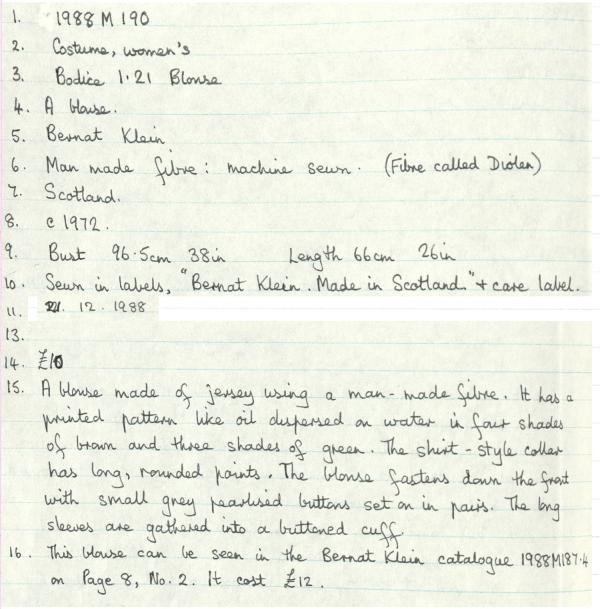 1. 1988 M 190
2. Costume, women's
3. Bodice 1.21 Blouse
4. A blouse.
5. Bernat Klein.
6. Man made fibre: machine sewn. (Fibre called Diolen)
7. Scotland.
8. c 1972.
9. Bust 96.5cm 38in Length 66cm 26in
10. Sewn in labels, "Bernat Klein. Made in Scotland." + care label.
11. 21. 12. 1988
13.
14. £10
15. A blouse made of jersey using a man-made fibre. It has a
printed pattern like oil dispersed on water in four shades
of brown and three shades of green. The shirt-style collar
has long, rounded points. The blouse fastens down the front
with small grey pearlised buttons set on in pairs. The long
sleeves are gathered into a buttoned cuff.
16. This blouse can be seen in the Bernat Klein catalogue 1988M187.4
on Page 8, No. 2. It cost £12.